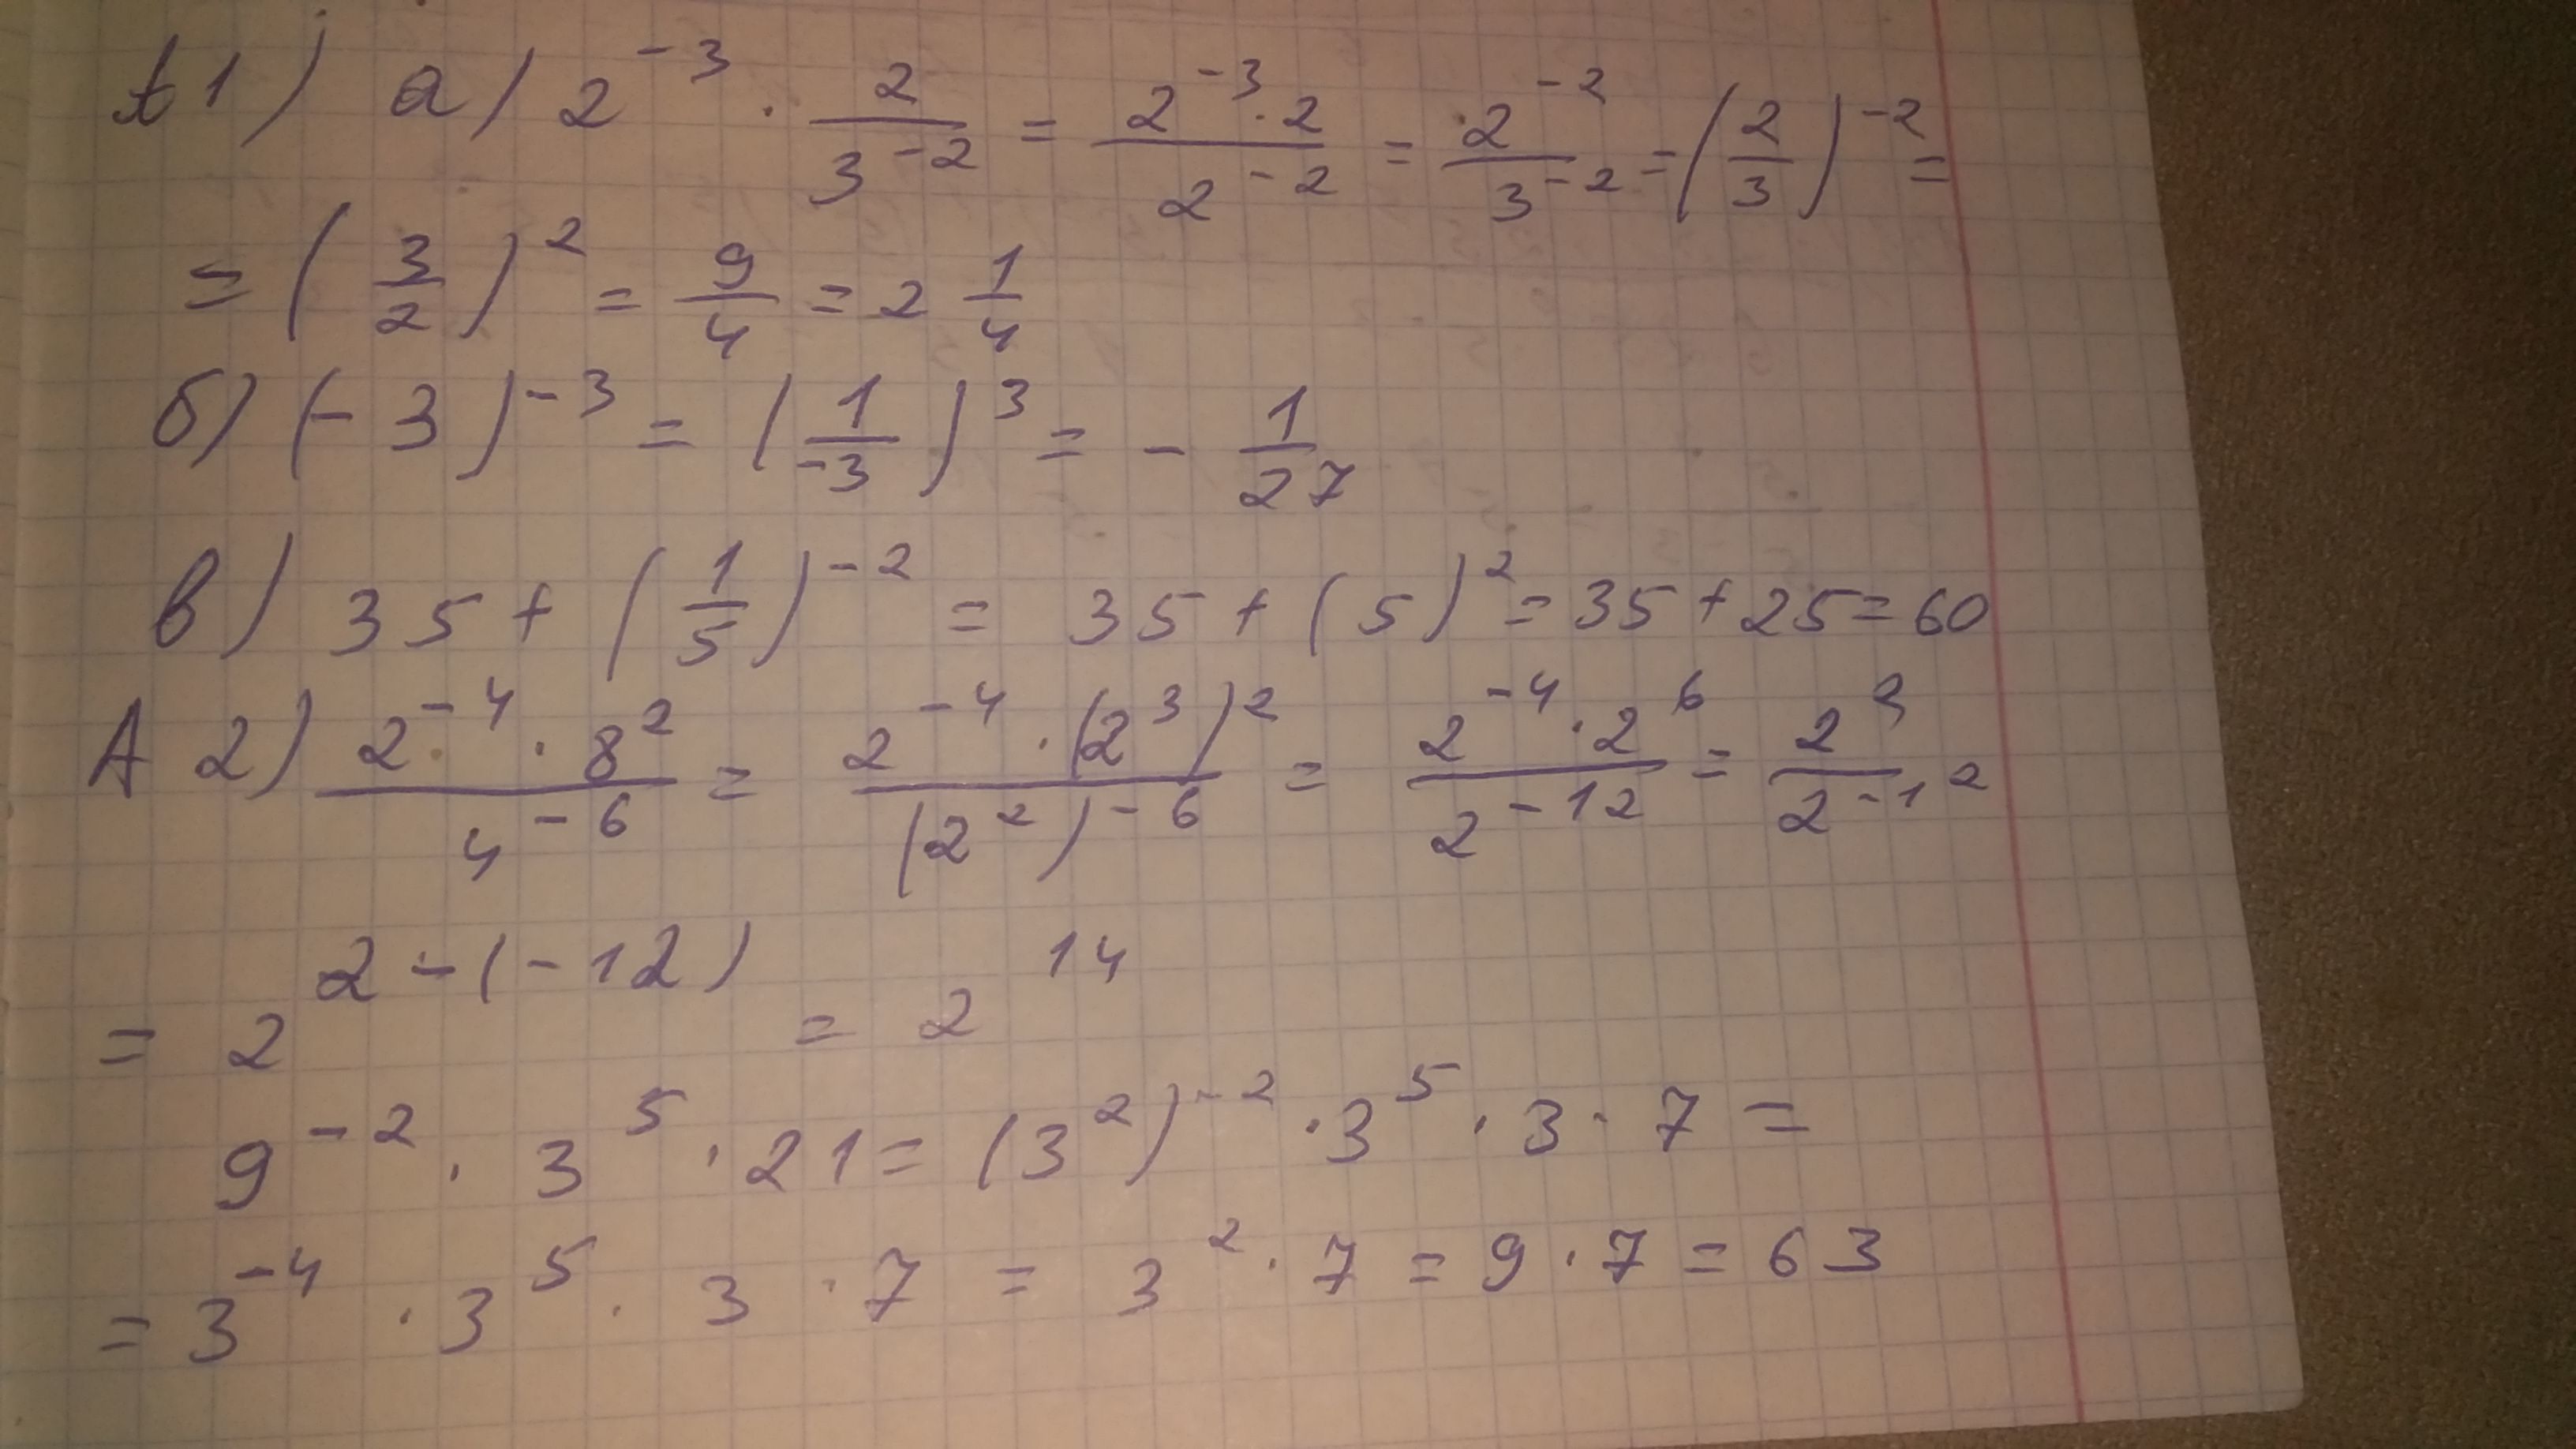 А1) а) 2^{-3} · \frac{2}{3^{-2}} = \frac{2^{-3} · 2}{2^{-2}} = \frac{2^{-2}}{3^{-2}} = (\frac{2}{3})^{-2} =
= (\frac{3}{2})^2 = \frac{9}{4} = 2\frac{1}{4}
б) (-3)^{-3} = (\frac{1}{-3})^3 = -\frac{1}{27}
в) 35 + (\frac{1}{5})^{-2} = 35 + (5)^2 = 35 + 25 = 60
А2) \frac{2^{-4} · 8^2}{4^{-6}} = \frac{2^{-4} · (2^3)^2}{(2^2)^{-6}} = \frac{2^{-4} · 2^6}{2^{-12}} = \frac{2^2}{2^{-12}}
= 2^{2-(-12)} = 2^{14}
9^{-2} · 3^5 · 21 = (3^2)^{-2} · 3^5 · 3 · 7 =
= 3^{-4} · 3^5 · 3 · 7 = 3^2 · 7 = 9 · 7 = 63